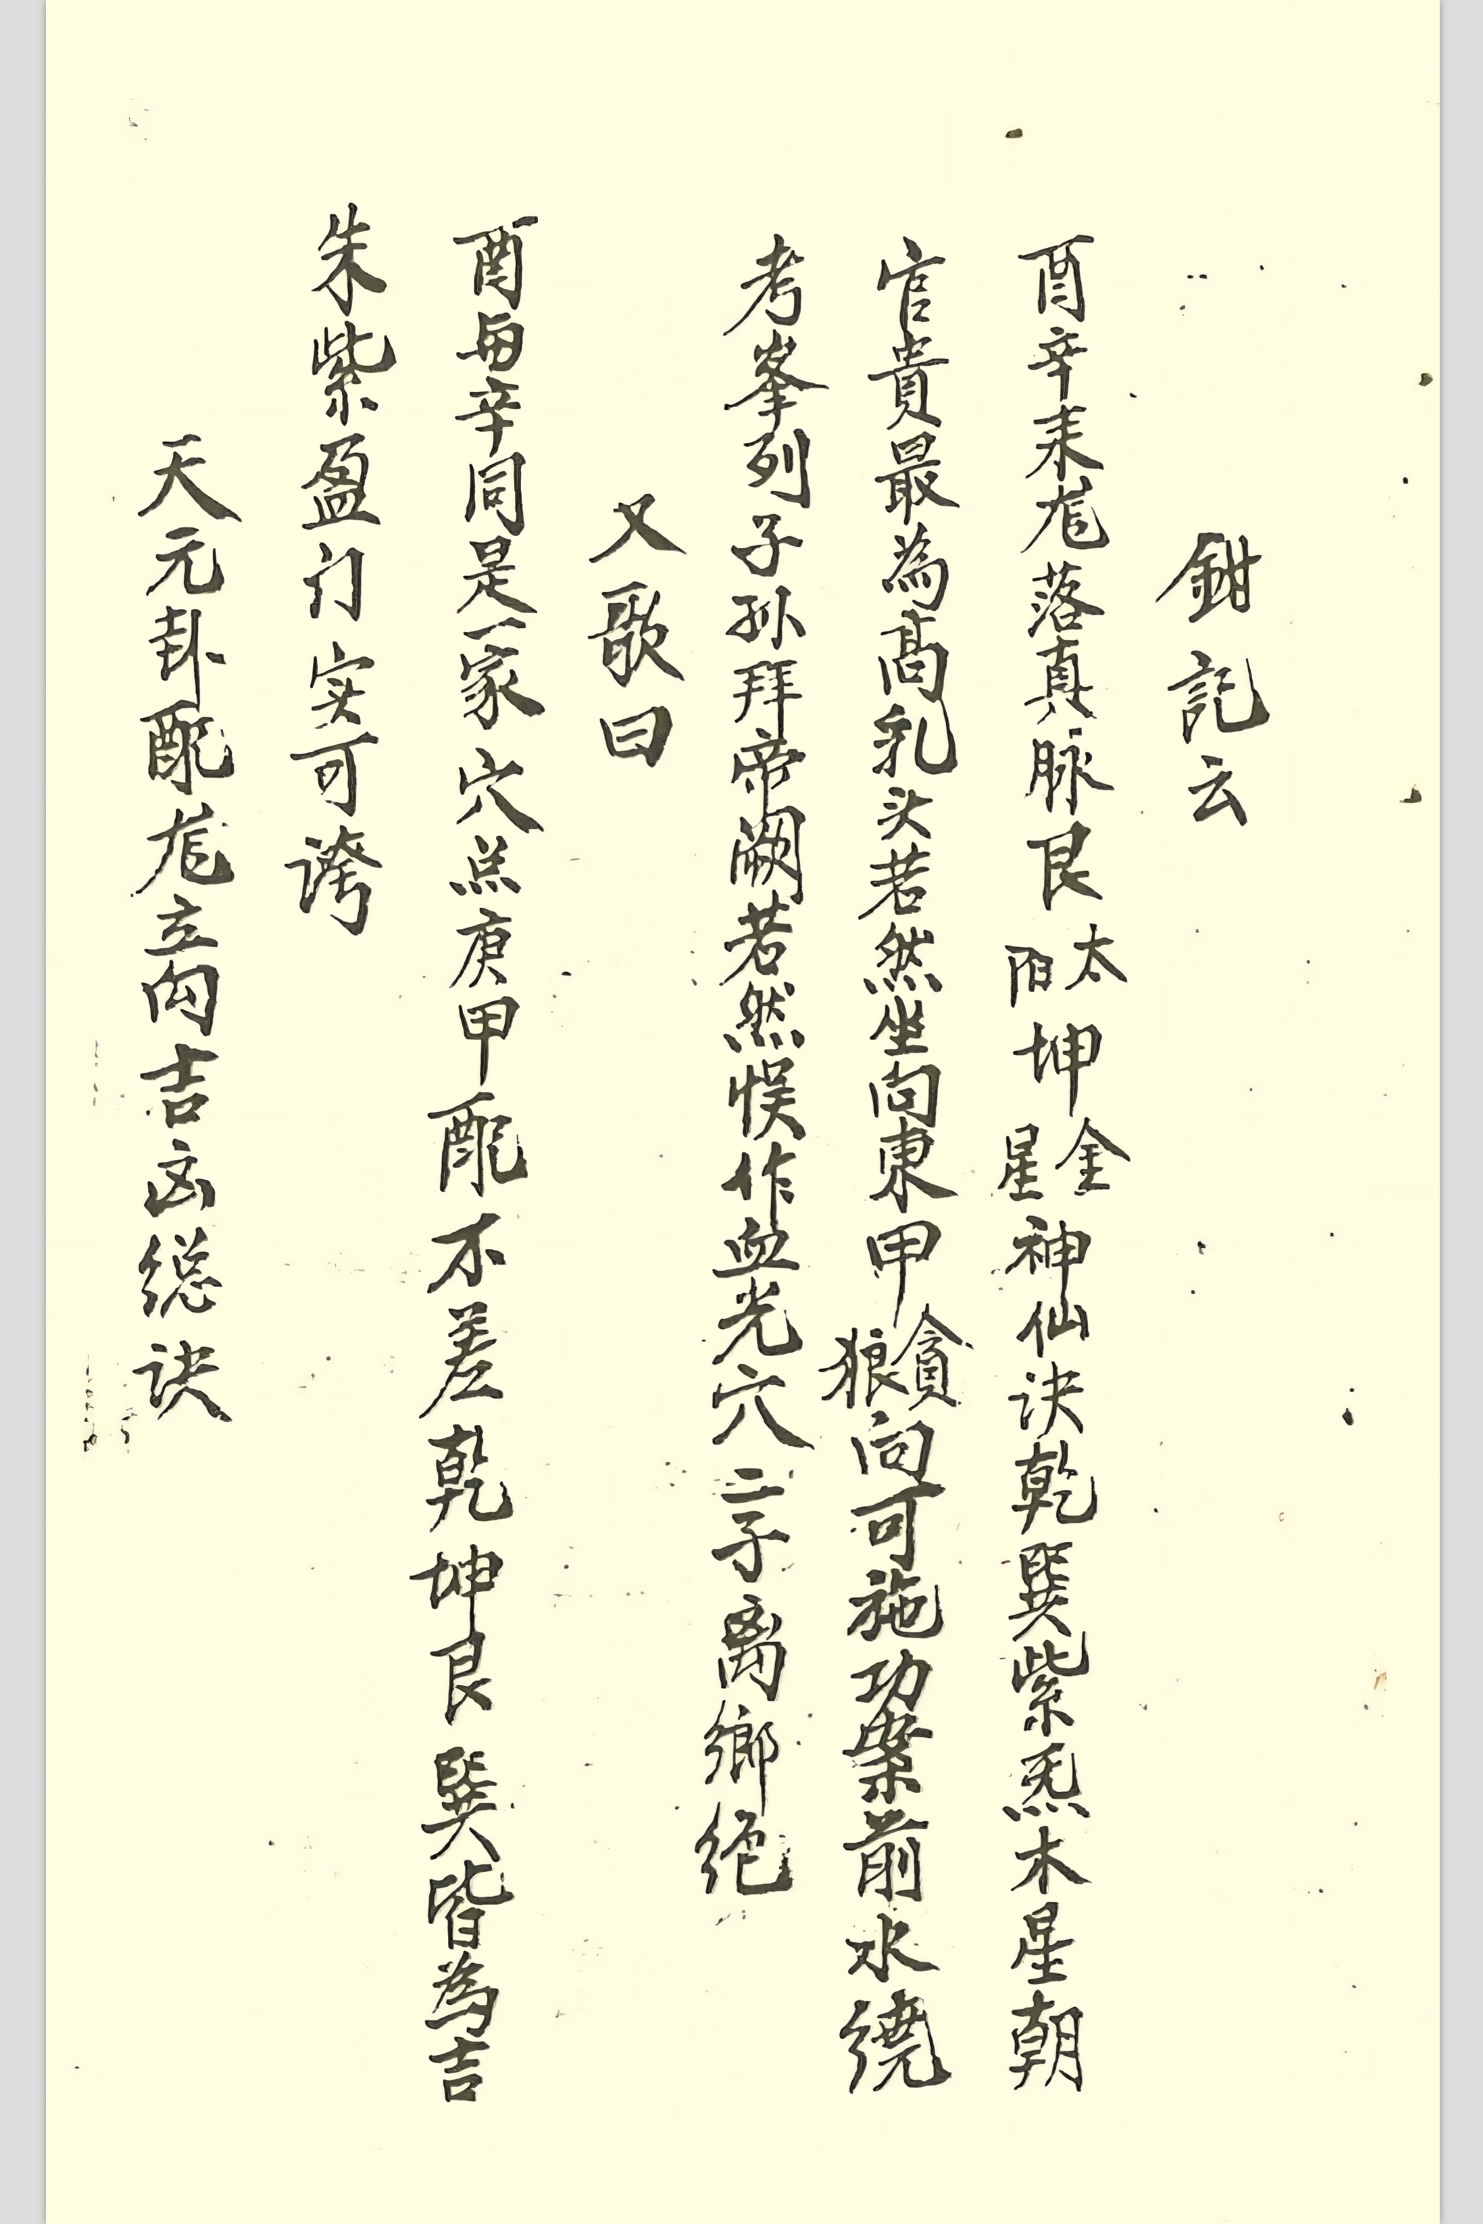 鉗記云
酉辛来龙落真脉艮太阳坤金星神仙诀乾巽紫炁木星朝
官貴最為高乳头若然坐向東甲貪狼向可施功案前水繞
考峯列子孙拜帝阙若然悮作血光穴二子离鄉绝
又歌曰
酉與辛同是一家穴点庚甲配不差乾坤艮巽皆為吉
朱紫盈门实可誇
天元卦配龙立向吉凶総诀